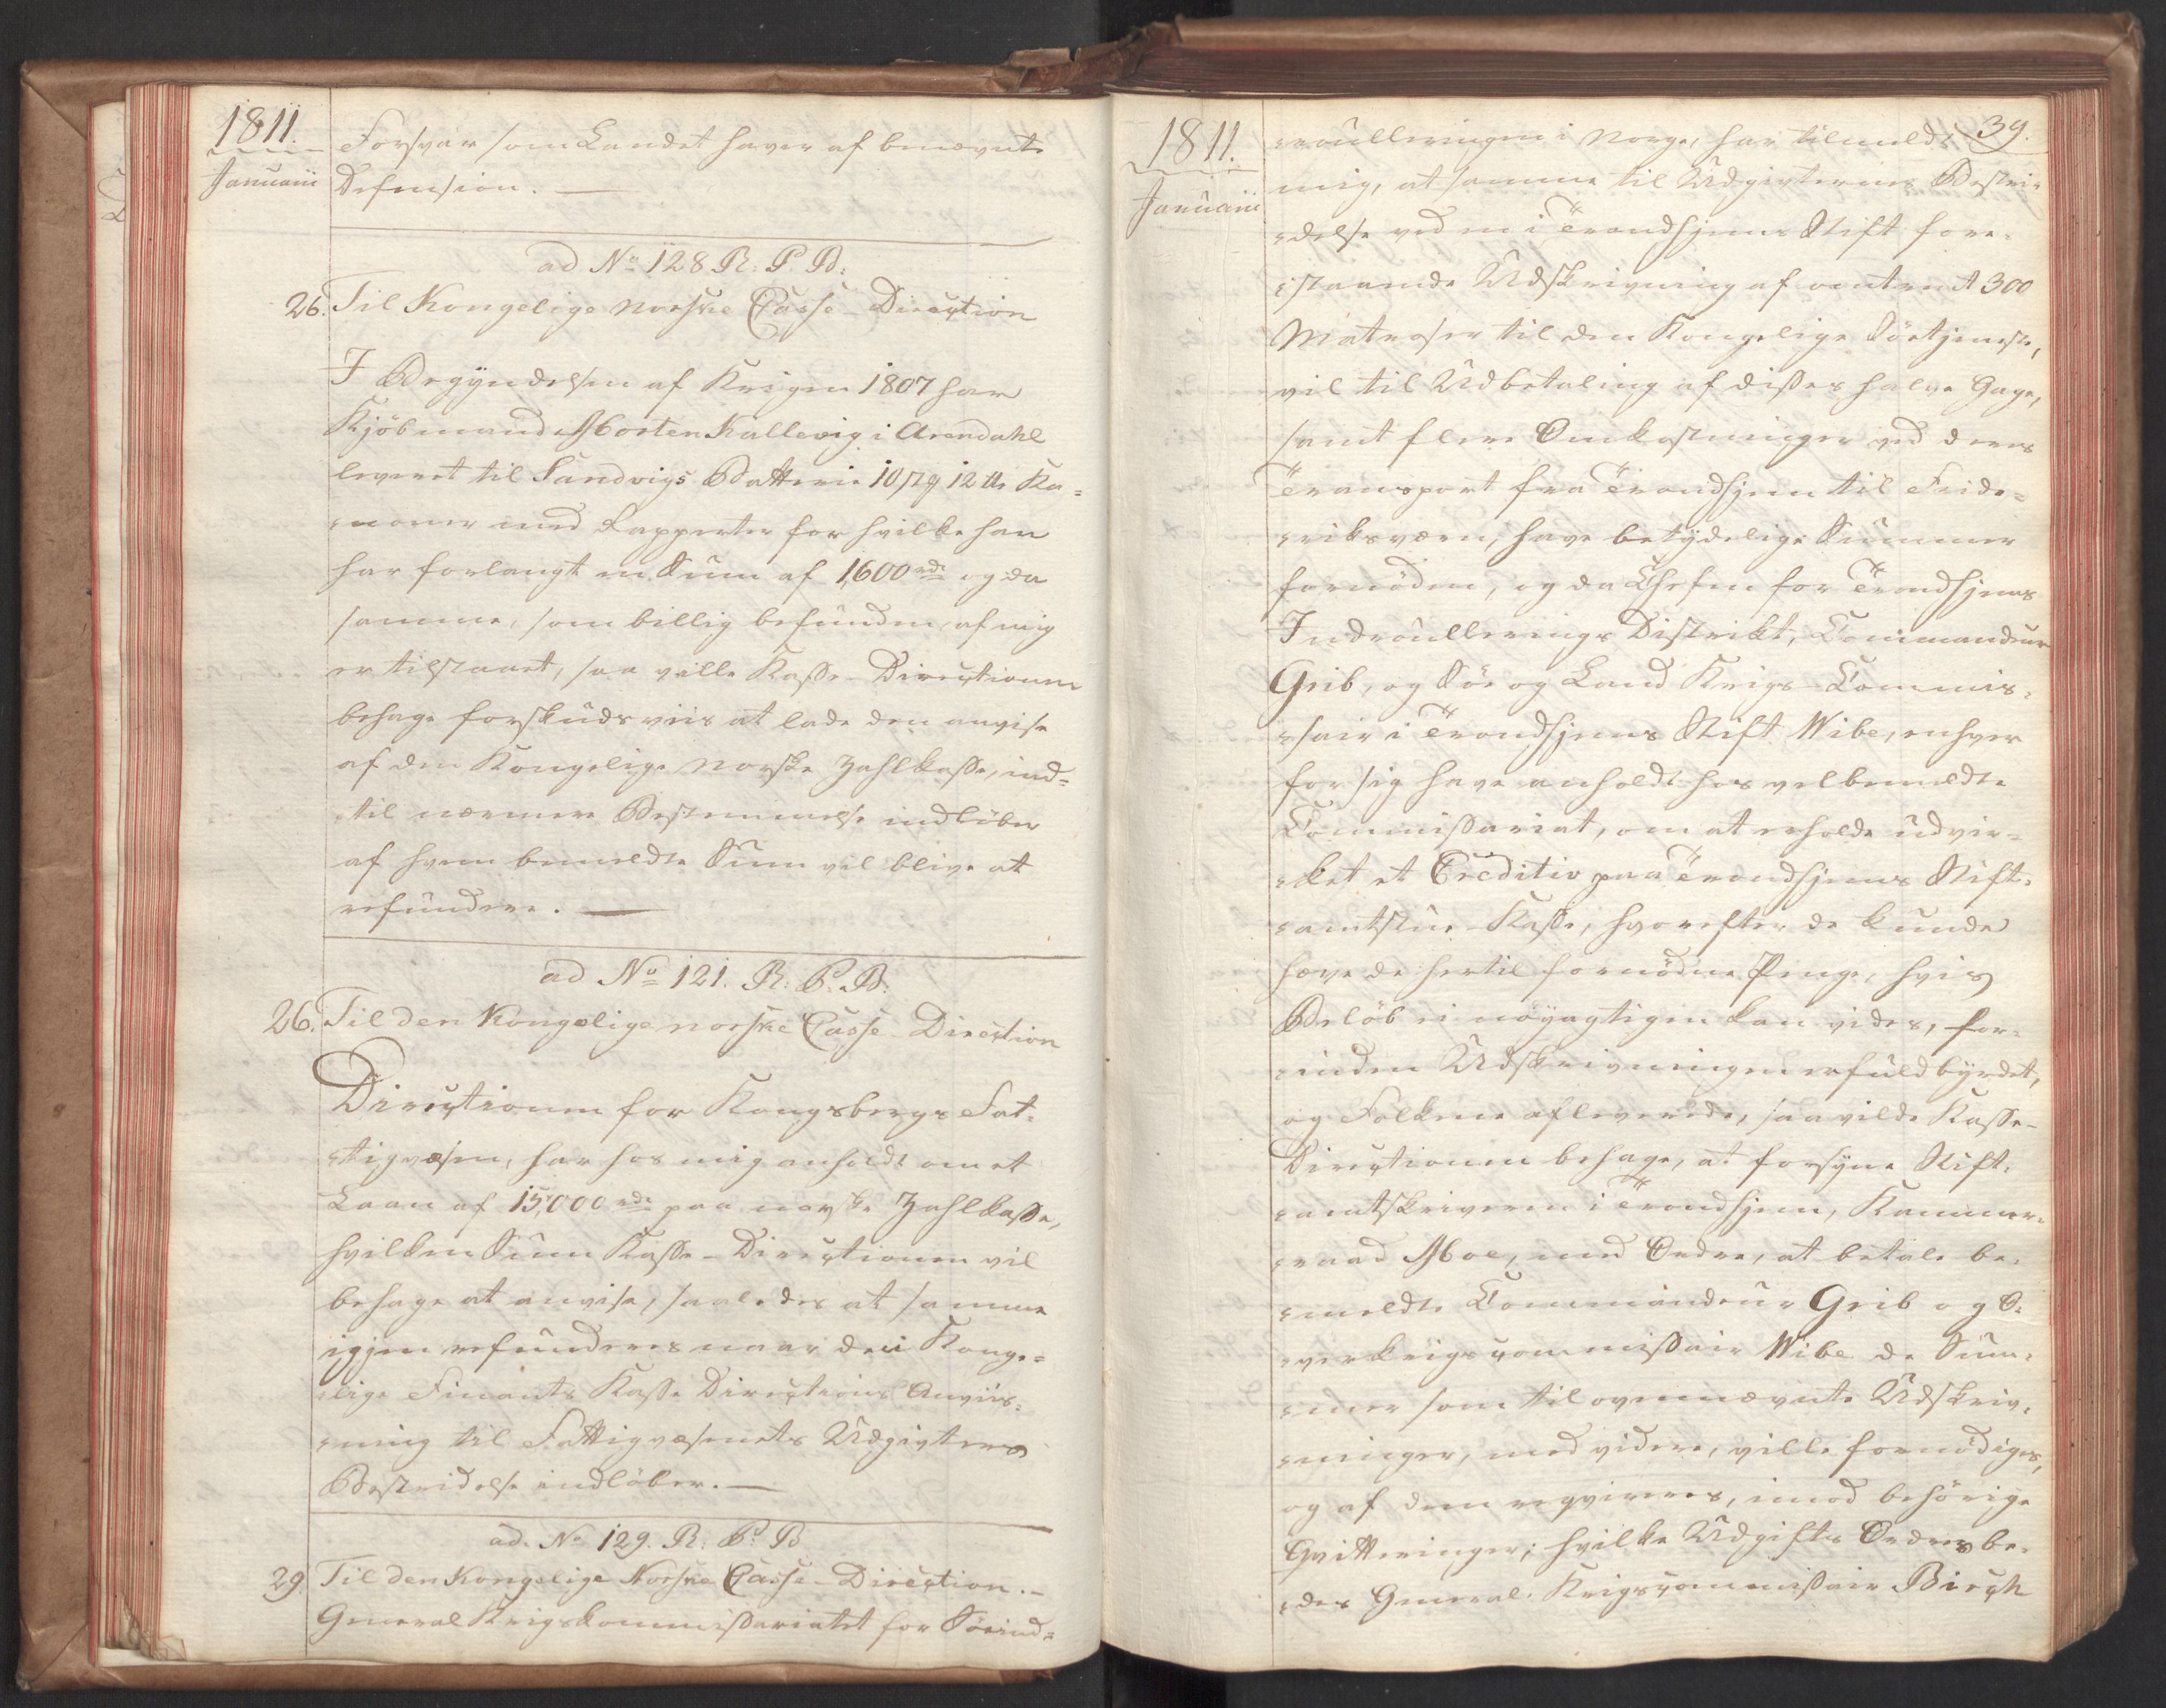 1811.
Januarii
Forsvar som Landet haver af benævnte
Defension. —
ad No 128 R: P. B:
26. Til Kongelige norske Casse-Direction
I Begyndelsen af Krigen 1807 har
Kjöbmand Morten Kallevig i Arendahl
leveret til Sandvigs Batterie 10 stk 12 ℔ Ka=
=noner med Rapperter for hvilke han
har forlangt en Sum af 1,600 rdr og da
samme, som billig befunden, af mig
er tilstaaet, saa ville Kasse-Directionen
behage forskudsviis at lade den anvise
af den Kongelige norske Zahlkasse, ind=
til nærmere Bestemmelse indlöber
af hvem bemeldte Sum vil blive at
refundere. —
ad No 121. R: P. B:
26. Til den Kongelige norske Casse-Direction
Directionen for Kongsbergs Fat=
=tigvæsen, har hos mig anholdt om et
Laan af 15,000 rdr paa norske Zahlkasse,
hvilken Sum Kasse-Directionen vil
behage at anvise, saaledes at samme
igjen refunderes naar den Konge=
=lige Finants Kasse Directions Anviis=
=ning til Fattigvæsenets Udgivters
Bestridelse indlöber. —
ad. No 129. R: P. B
29. Til den Kongelige Norske Casse-Direction. –
General Krigskommissariatet for Söeind=
39.
1811.
Januarii
=roulleringen i Norge, har tilmeldt
mig, at samme til Udgivternes Bestri=
=delse ved en i Trondhjems Stift fore=
=staaende Udskrivning af omtrent 300
Matroser til den Kongelige Söetjeneste,
vil til Udbetaling af disses halve Gage,
samt flere Omkostninger ved deres
Transport fra Trondhjem til Fride=
=riksværn, have betydelige Summer
fornöden, og da Chefen for Trondhjems
Indroullerings Distrikt, Commandeur
Grib, og Söe og Land Krigs-Commis=
=sair i Trondhjems Stift Wibe, enhver
for sig have anholdt hos velbemeldte
Commissariat, om at erholde udvir=
=ket et Creditiv paa Trondhjems Stift=
=amtstue-Kasse, hvorefter de kunde
hæve de hertil fornödne Penge, hvis
Belöb ei nöyagtigen kan vides, for=
=inden Udskrivningen er fuldbyrdet,
og Folkene afleverede, saa vilde Kasse-
Directionen behage, at forsyne Stift=
=amtskriveren i Trondhjem, Kammer=
=raad Moe, med Ordre, at betale be=
=meldte Commandeur Grib og O=
=verkrigscommissair Wibe de Sum=
=mer som til ovennævnte Udskriv=
=ninger, med videre, ville fornödiges,
og af dem reqvireres, imod behörige
Qvitteringer; hvilke Udgifts Ordres be=
=des General-Krigscommissair Birch